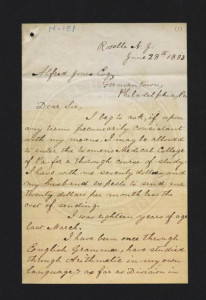 H-181
(1)
Roselle N. J.
June 28th 1883
Alfred Jones Esq
Germantown,
Philadelphia, Pa
Dear Sir,
I beg to ask, if upon
any term pecuniarily consistent
with my means, I may be allowed
to enter the Womans Medical College
of Pa for a through course of study.
I have with me seventy dollars and
my husband expects to send me
twenty dollars per month less the
cost of sending.
I was eighteen years of age
last March.
I have been once through
English Grammar, have studied
through Arithmetic in my own
language, & as far as Division in